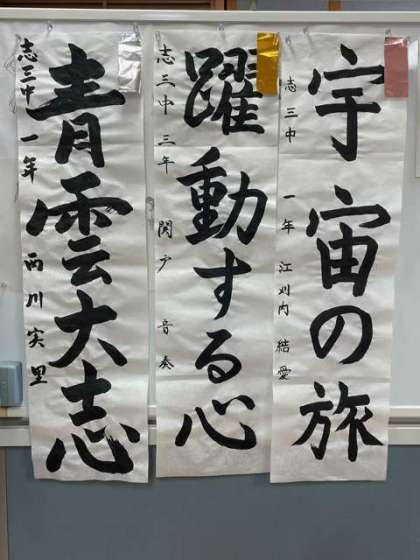 宇宙の旅
志三中 一年 江刈内 結愛
躍動する心
志三中 三年 関戸 音奏
青雲大志
志三中 一年 西川実里